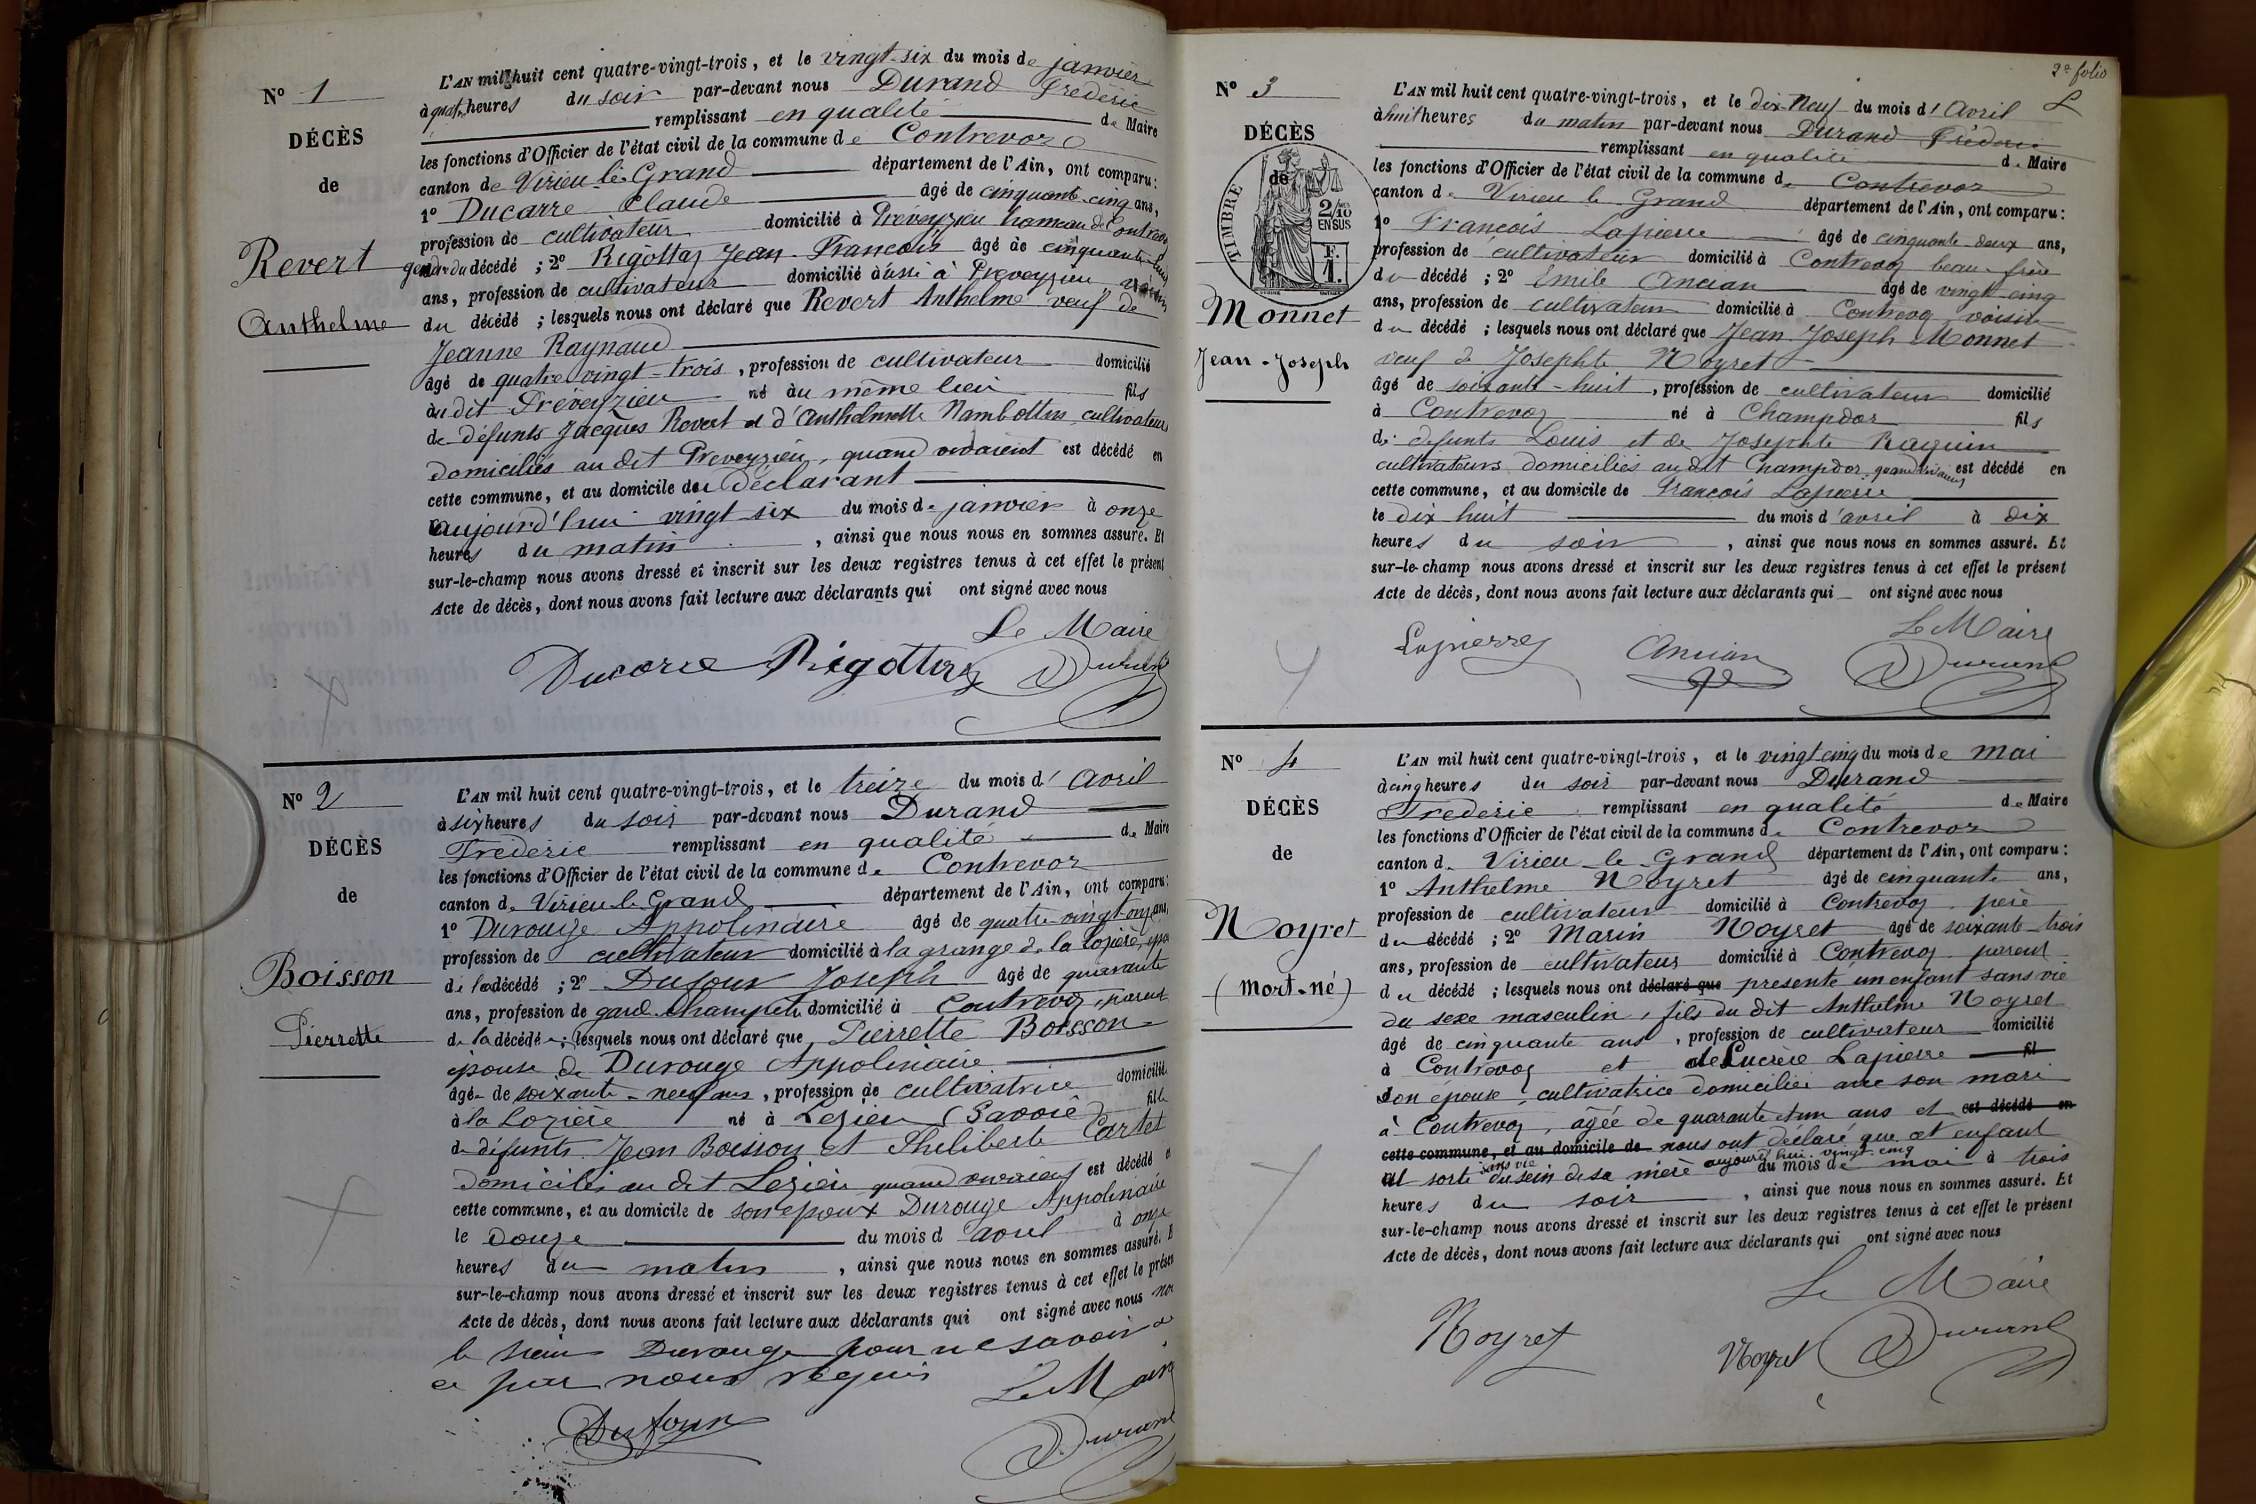 N° 1
DÉCÈS
de
Revert
Anthelme
L'AN mil huit cent quatre-vingt-trois, et le vingt-six du mois de janvier
à quatre heures du soir par-devant nous Durand Frédéric
remplissant en qualité de Maire
les fonctions d'Officier de l'état civil de la commune de Contrevoz
canton de Virieu-le-Grand département de l'Ain, ont comparu :
1° Ducarre Claude âgé de cinquante-cinq ans,
profession de cultivateur domicilié à Préveyzieu hameau de Contrevoz
gendre du décédé ; 2° Rigottaz Jean-François âgé de cinquante
ans, profession de cultivateur domicilié aussi à Préveyzieu voisin
du décédé ; lesquels nous ont déclaré que Revert Anthelme veuf de
Jeanne Raynaud
âgé de quatre-vingt-trois, profession de cultivateur domicilié
au dit Préveyzieu né au même lieu fils
de défunts Jacques Revert et d'Anthelmette Nambottin, cultivateurs
domiciliés au dit Preveyzieu, quand vivaient est décédé en
cette commune, et au domicile du déclarant
aujourd'hui vingt six du mois de janvier à onze
heures du matin, ainsi que nous nous en sommes assuré. Et
sur-le-champ nous avons dressé et inscrit sur les deux registres tenus à cet effet le présent
Acte de décès, dont nous avons fait lecture aux déclarants qui ont signé avec nous
Le Maire
Ducarre Rigottaz Durand
N° 2
DÉCÈS
de
Boisson
Pierrette
L'AN mil huit cent quatre-vingt-trois, et le treize du mois d'Avril
à six heures du soir par-devant nous Durand
Frédéric remplissant en qualité de Maire
les fonctions d'Officier de l'état civil de la commune de Contrevoz
canton de Virieu-le-Grand département de l'Ain, ont comparu :
1° Durouge Appolinaire âgé de quatre-vingt-onze ans,
profession de cultivateur domicilié à la grange de la Lozière, époux
de la décédé ; 2° Dufour Joseph âgé de quarante
ans, profession de garde champêtre domicilié à Contrevoz, parent
de la décédée ; lesquels nous ont déclaré que Pierrette Boisson
épouse de Durouge Appolinaire
âgée de soixante-neuf ans, profession de cultivatrice domicilié
à la Lozière né à Lezieu (Savoie) fille
de défunts Jean Boisson et Philiberte Cartet
domiciliés au dit Lezieu quand vivaient est décédé
cette commune, et au domicile de son époux Durouge Appolinaire
le douze du mois d avril à onze
heures du matin, ainsi que nous nous en sommes assuré. E
sur-le-champ nous avons dressé et inscrit sur les deux registres tenus à cet effet le présen
Acte de décès, dont nous avons fait lecture aux déclarants qui ont signé avec nous non
le sieur Durouge pour ne savoir
ce par nous requis
Le Maire
Dufour Durand
2e folio
N° 3
DÉCÈS
de
TIMBRE
2/10 EN SUS
F. 1.
Monnet
Jean-Joseph
L'AN mil huit cent quatre-vingt-trois, et le dix-Neuf du mois d'Avril
à huit heures du matin par-devant nous Durand Fréderic
remplissant en qualité de Maire
les fonctions d'Officier de l'état civil de la commune de Contrevoz
canton de Virieu le Grand département de l'Ain, ont comparu :
1° François Lapierre âgé de cinquante-deux ans,
profession de cultivateur domicilié à Contrevoz beau-frère
du décédé ; 2° Emile Ancian âgé de vingt-cinq
ans, profession de cultivateur domicilié à Contrevoz voisin
du décédé ; lesquels nous ont déclaré que Jean-Joseph Monnet
veuf de Josephte Noyret
âgé de soixante-huit, profession de cultivateur domicilié
à Contrevoz né à Champdor fils
de défunts Louis et de Josephte Raquin
cultivateurs domiciliés au dit Champdor quand vivaient est décédé en
cette commune, et au domicile de François Lapierre
le dix huit du mois d'avril à dix
heures du soir, ainsi que nous nous en sommes assuré. Et
sur-le-champ nous avons dressé et inscrit sur les deux registres tenus à cet effet le présent
Acte de décès, dont nous avons fait lecture aux déclarants qui ont signé avec nous
Le Maire
Lapierre Ancian Durand
N° 4
DÉCÈS
de
Noyret
(mort-né)
L'AN mil huit cent quatre-vingt-trois, et le vingt cinq du mois de mai
à cinq heures du soir par-devant nous Durand
Frederic remplissant en qualité de Maire
les fonctions d'Officier de l'état civil de la commune de Contrevoz
canton de Virieu-le-Grand département de l'Ain, ont comparu :
1° Anthelme Noyret âgé de cinquante ans,
profession de cultivateur domicilié à Contrevoz père
du décédé ; 2° Marin Noyret âgé de soixante-trois
ans, profession de cultivateur domicilié à Contrevoz parent
du décédé ; lesquels nous ont déclaré que présenté un enfant sans vie
du sexe masculin, fils du dit Anthelme Noyret
âgé de cinquante ans, profession de cultivateur domicilié
à Contrevoz et de Lucrèce Lapierre fil
son épouse, cultivatrice domiciliée avec son mari
à Contrevoz, âgée de quarante et un ans et est décédé en
cette commune, et au domicile de nous ont déclaré que cet enfant
est sorti sans vie du sein de sa mère aujourd'hui vingt-cinq du mois de mai à trois
heures du soir, ainsi que nous nous en sommes assuré. Et
sur-le-champ nous avons dressé et inscrit sur les deux registres tenus à cet effet le présent
Acte de décès, dont nous avons fait lecture aux déclarants qui ont signé avec nous
Le Maire
Noyret Noyret Durand